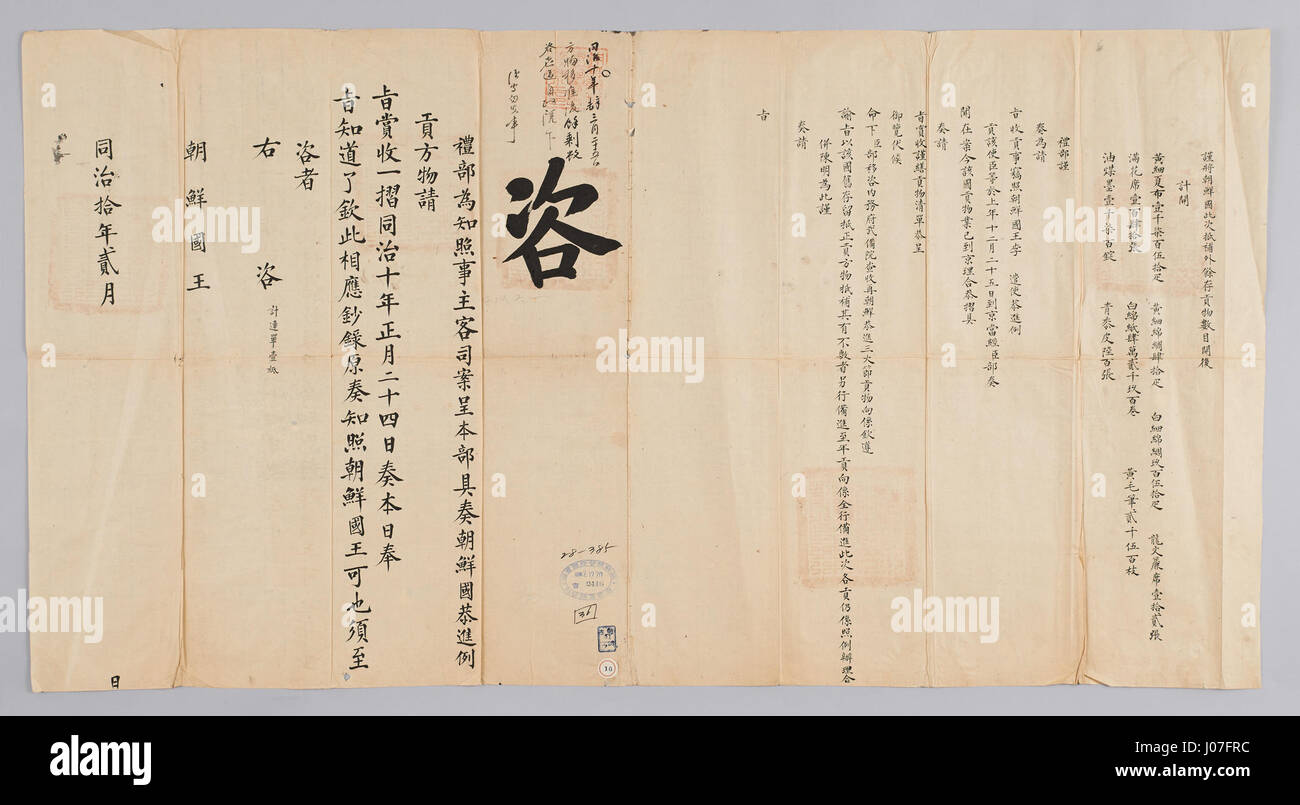 謹將朝鮮國此次抵補外餘存貢物數目開後
計開
黃細夏布壹千柒百伍拾疋 黃細綿綢肆拾疋 白細綿綢玖百伍拾疋 龍文簾席壹拾貳張
滿花席壹百肆拾張 白綿紙肆萬貳千玖百卷 黃毛筆貳千伍百枝
油煤墨壹千柒百錠 青黍皮陸百張
禮部謹
奏為請
旨收貢事竊照朝鮮國王李 遣使恭進例
貢該使臣等於上年十二月二十五日到京當經臣部奏
聞在案今該國貢物業已到京理合恭摺具
奏請
旨賞收謹繕貢物清單恭呈
御覽伏候
命下臣部移咨內務府武備院查收再朝鮮恭進三大節貢物向係欽遵
諭旨以該國舊存留抵正貢方物抵補其有不敷者另行備進至年貢向係全行備進此次各貢仍係照例辦理合
併陳明為此謹
奏請
旨
咨
同治十年 三月二十
方物移准後餘剩
28-385
36
10
禮部為知照事主客司案呈本部具奏朝鮮國恭進例
貢方物請
旨賞收一摺同治十年正月二十四日奏本日奉
旨知道了欽此相應鈔錄原奏知照朝鮮國王可也須至
咨者
右 咨 計連單壹紙
朝鮮國王
同治拾年貳月 日
alamy
www.alamy.com
J07FRC